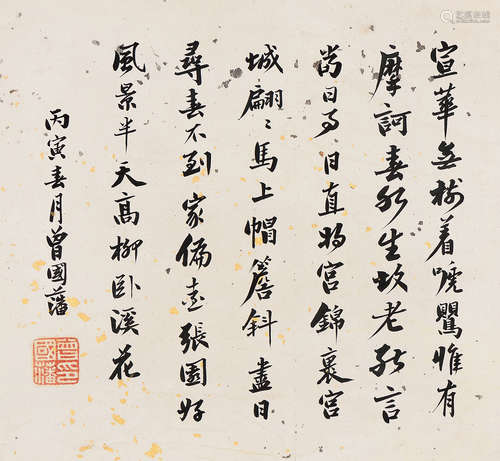 宣華無樹着嗁鸎惟有
摩訶春水生故老能言
當日事直將宮錦裹宮
城翩〻馬上帽簷斜盡日
尋春不到家偏愛張園好
風景半天高柳臥溪花
丙寅春月曾國藩
曾印
國藩